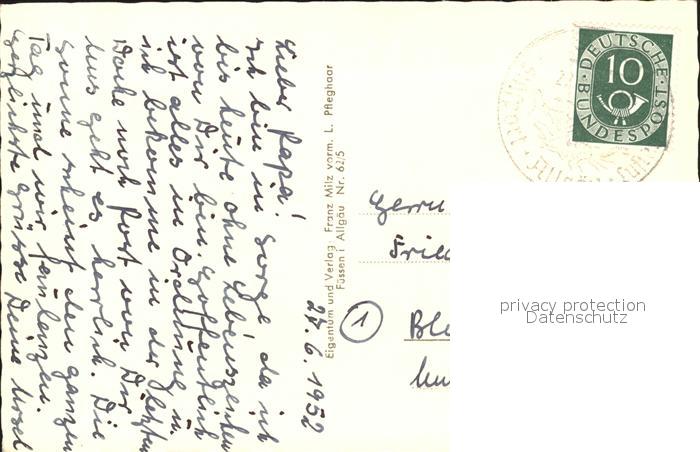 27.6.1952
Lieber Papa!
Ich bin in Sorge, da ich
bis heute ohne Lebenszeichen
von Dir bin. Hoffentlich
ist alles in Ordnung u.
ich bekomme in der letzten
Woche noch Post von Dir.
Uns geht es herrlich. Die
Sonne scheint den ganzen
Tag und wir faulenzen.
Herzlichste Grüsse Deine Ursel
Eigentum und Verlag Franz Milz vorm. L. Pfleghaar
Füssen i Allgäu Nr. 62/5
DEUTSCHE
10
BUNDESPOST
Herrn
Fried
1
privacy protection
Datenschutz